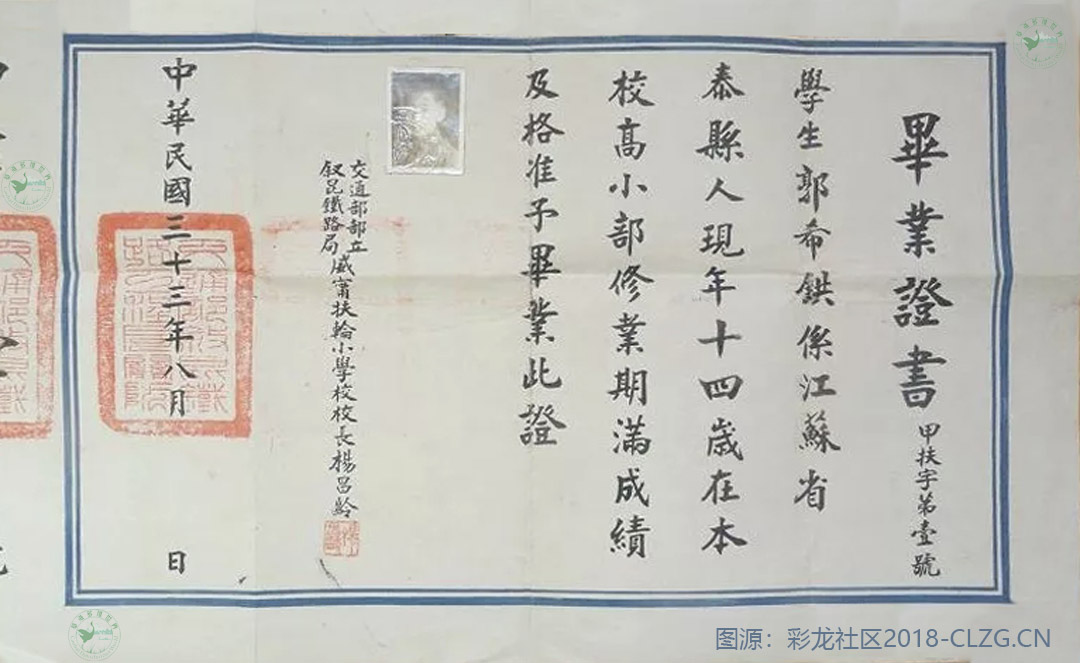 畢業證書
甲扶字第壹號
學生郭希鉷係江蘇省
泰縣人現年十四歲在本
校高小部修業期滿成績
及格准予畢業此證
交通部部立
叙昆鐵路局
威甯扶輪小學校校長楊呂齡
中華民國三十三年八月 日
图源：彩龙社区2018-CLZG.CN